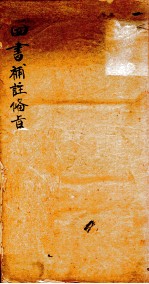 四書補註俻旨